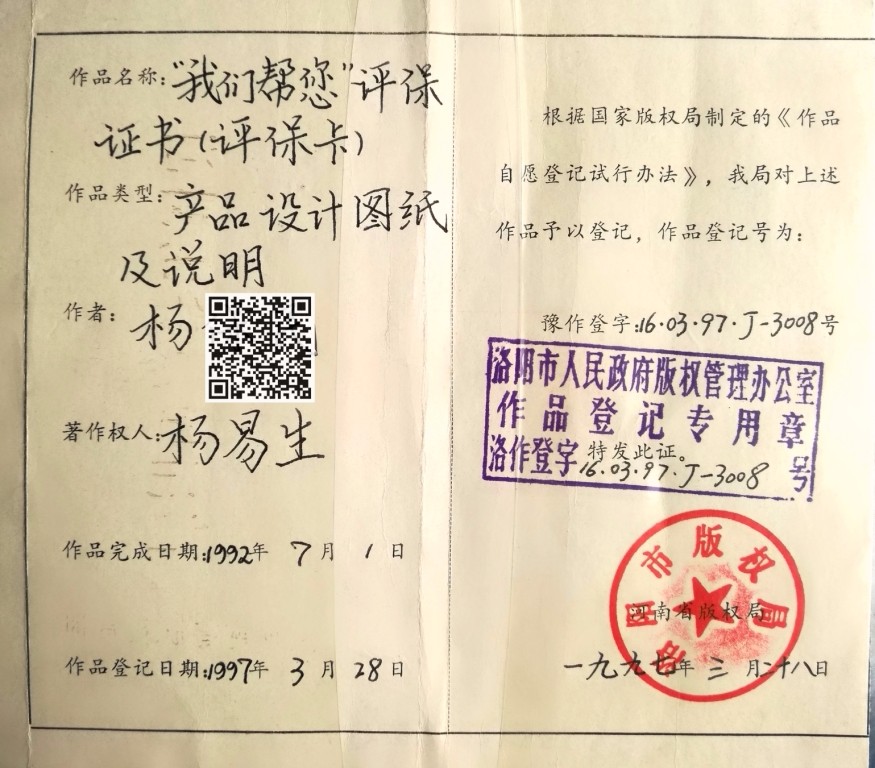 作品名称:"我们帮您"评保
证书(评保卡)
作品类型:产品设计图纸
及说明
作者:杨
著作权人:杨易生
作品完成日期:1992年 7月 1日
作品登记日期:1997年 3月 28日
根据国家版权局制定的《作品
自愿登记试行办法》,我局对上述
作品予以登记,作品登记号为:
豫作登字:16·03·97·J-3008号
洛阳市人民政府版权管理办公室
作品登记专用章
洛作登字16·03·97·J-3008号
特发此证。
洛阳市版权局
河南省版权局
一九九七年三月二十八日